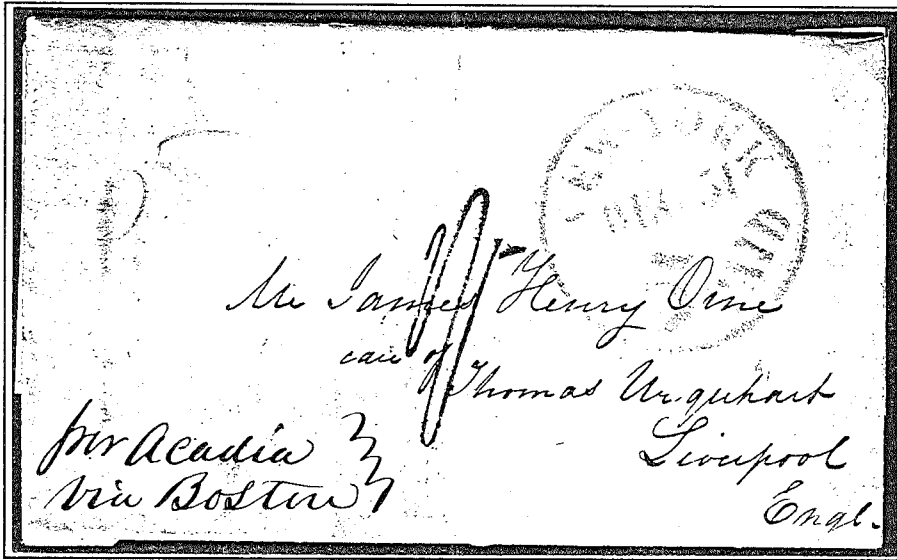 NEW-YORK
MAR 31
Mr James Henry Orne
care of
Thomas Urquhart
Liverpool
Engl.
per Acadia
via Boston